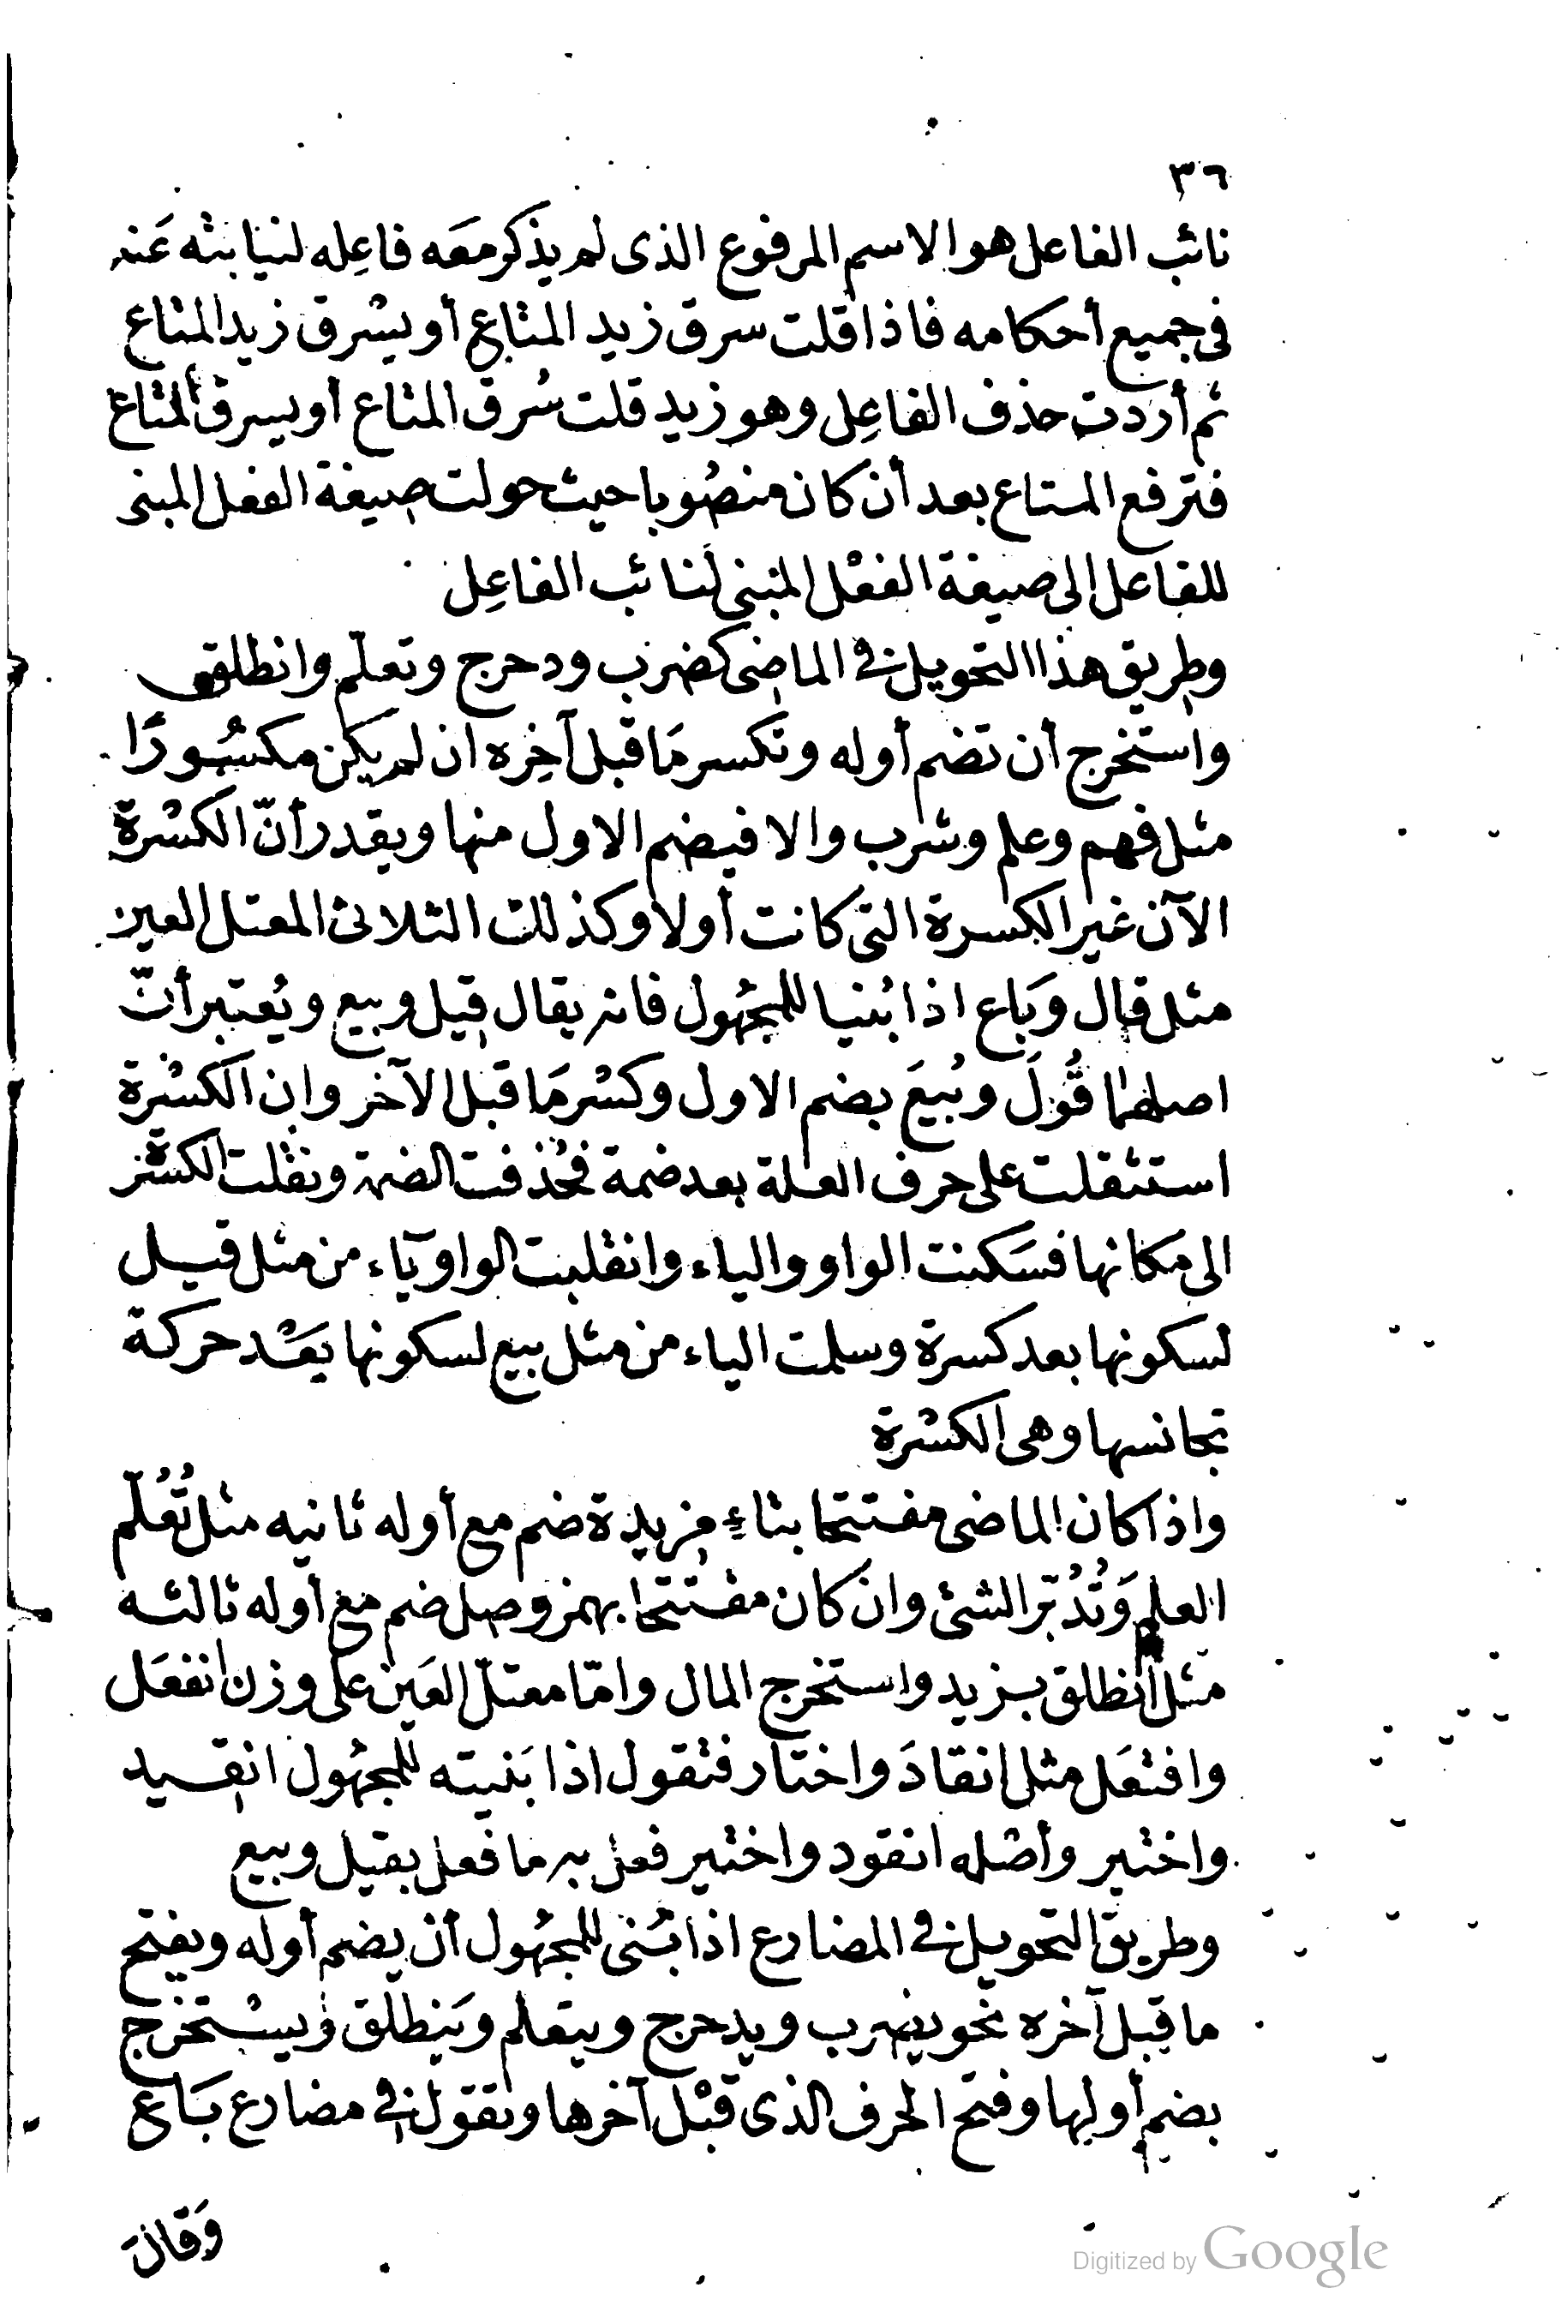 ٣٦
نائب الفاعل هو الاسم المرفوع الذى لم يذكر معَه فاعِله لنيابته عَنه
فى جميع أحكامه فاذا قلت سرق زيد المتاع أو يسْرق زيد المتاع
ثم أردت حذف الفاعِل وهو زيد قلت سُرق المتاع أو يسرق المتاع
فترفع المتاع بعد أن كان منصُوبا حيث حولت صيغة الفعل المبنى
للفاعل الى صيغة الفعْل المبنى لنائب الفاعِل
وطريق هذا التحويل فى الماضى كضرب ودحرج وتعلّم وانطلق
واستخرج أن تضم أوله وتكسر مَا قبل آخِره ان لم يكن مكسُورًا
مثل فهم وعلم وشرب والا فيضم الاول منها ويقدر أنّ الكسْرة
الآن غير الكسرة التى كانت أولا وكذلك الثلاثى المعتل العين
مثل قال وَباع اذا بُنيا للمجهُول فانه يقال قيل وبيع ويُعتبر أنّ
اصلهما قُوِلَ وبُيِعَ بضم الاول وكسْر مَا قبل الآخر وان الكسْرة
استثقلت على حرف العلة بعد ضمة فحُذفت الضمة ونقلت الكسْرة
الى مَكانها فسَكنت الواو والياء وانقلبت الواو يَاء من مثل قيل
لسكونها بعد كسرة وسلمت الياء من مثل بيع لسكونها بَعْد حركة
تجانسها وهى الكسْرة
واذا كان الماضى مفتتحا بتاءٍ مزيدة ضم مع أوله ثانيه مثل تُعُلّم
العلم وَتُدُبّر الشئ وان كان مفتتحا بهمز وصل ضم مع أوله ثالثه
مثل انطلق بزيد واستخرج المال وامّا معتلّ العَين على وزن انفعَل
وافتعَل مثل انقادَ واختار فتقول اذا بَنيته للمجهُول انقيد
واختير وأصْله انقود واختير فعل به ما فعل بقيل وبيع
وطريق التحويل فى المضارع اذا بُنى للمجهُول أن يضم أوله ويفتح
ما قبل آخره نحو يضرب ويدحرج ويتعلم ويَنطلق ويسْتخرج
بضم أولها وفتح الحرف الذى قبْل آخرها وتقول فى مضارع بَاع
وَقالَ
Digitized by Google